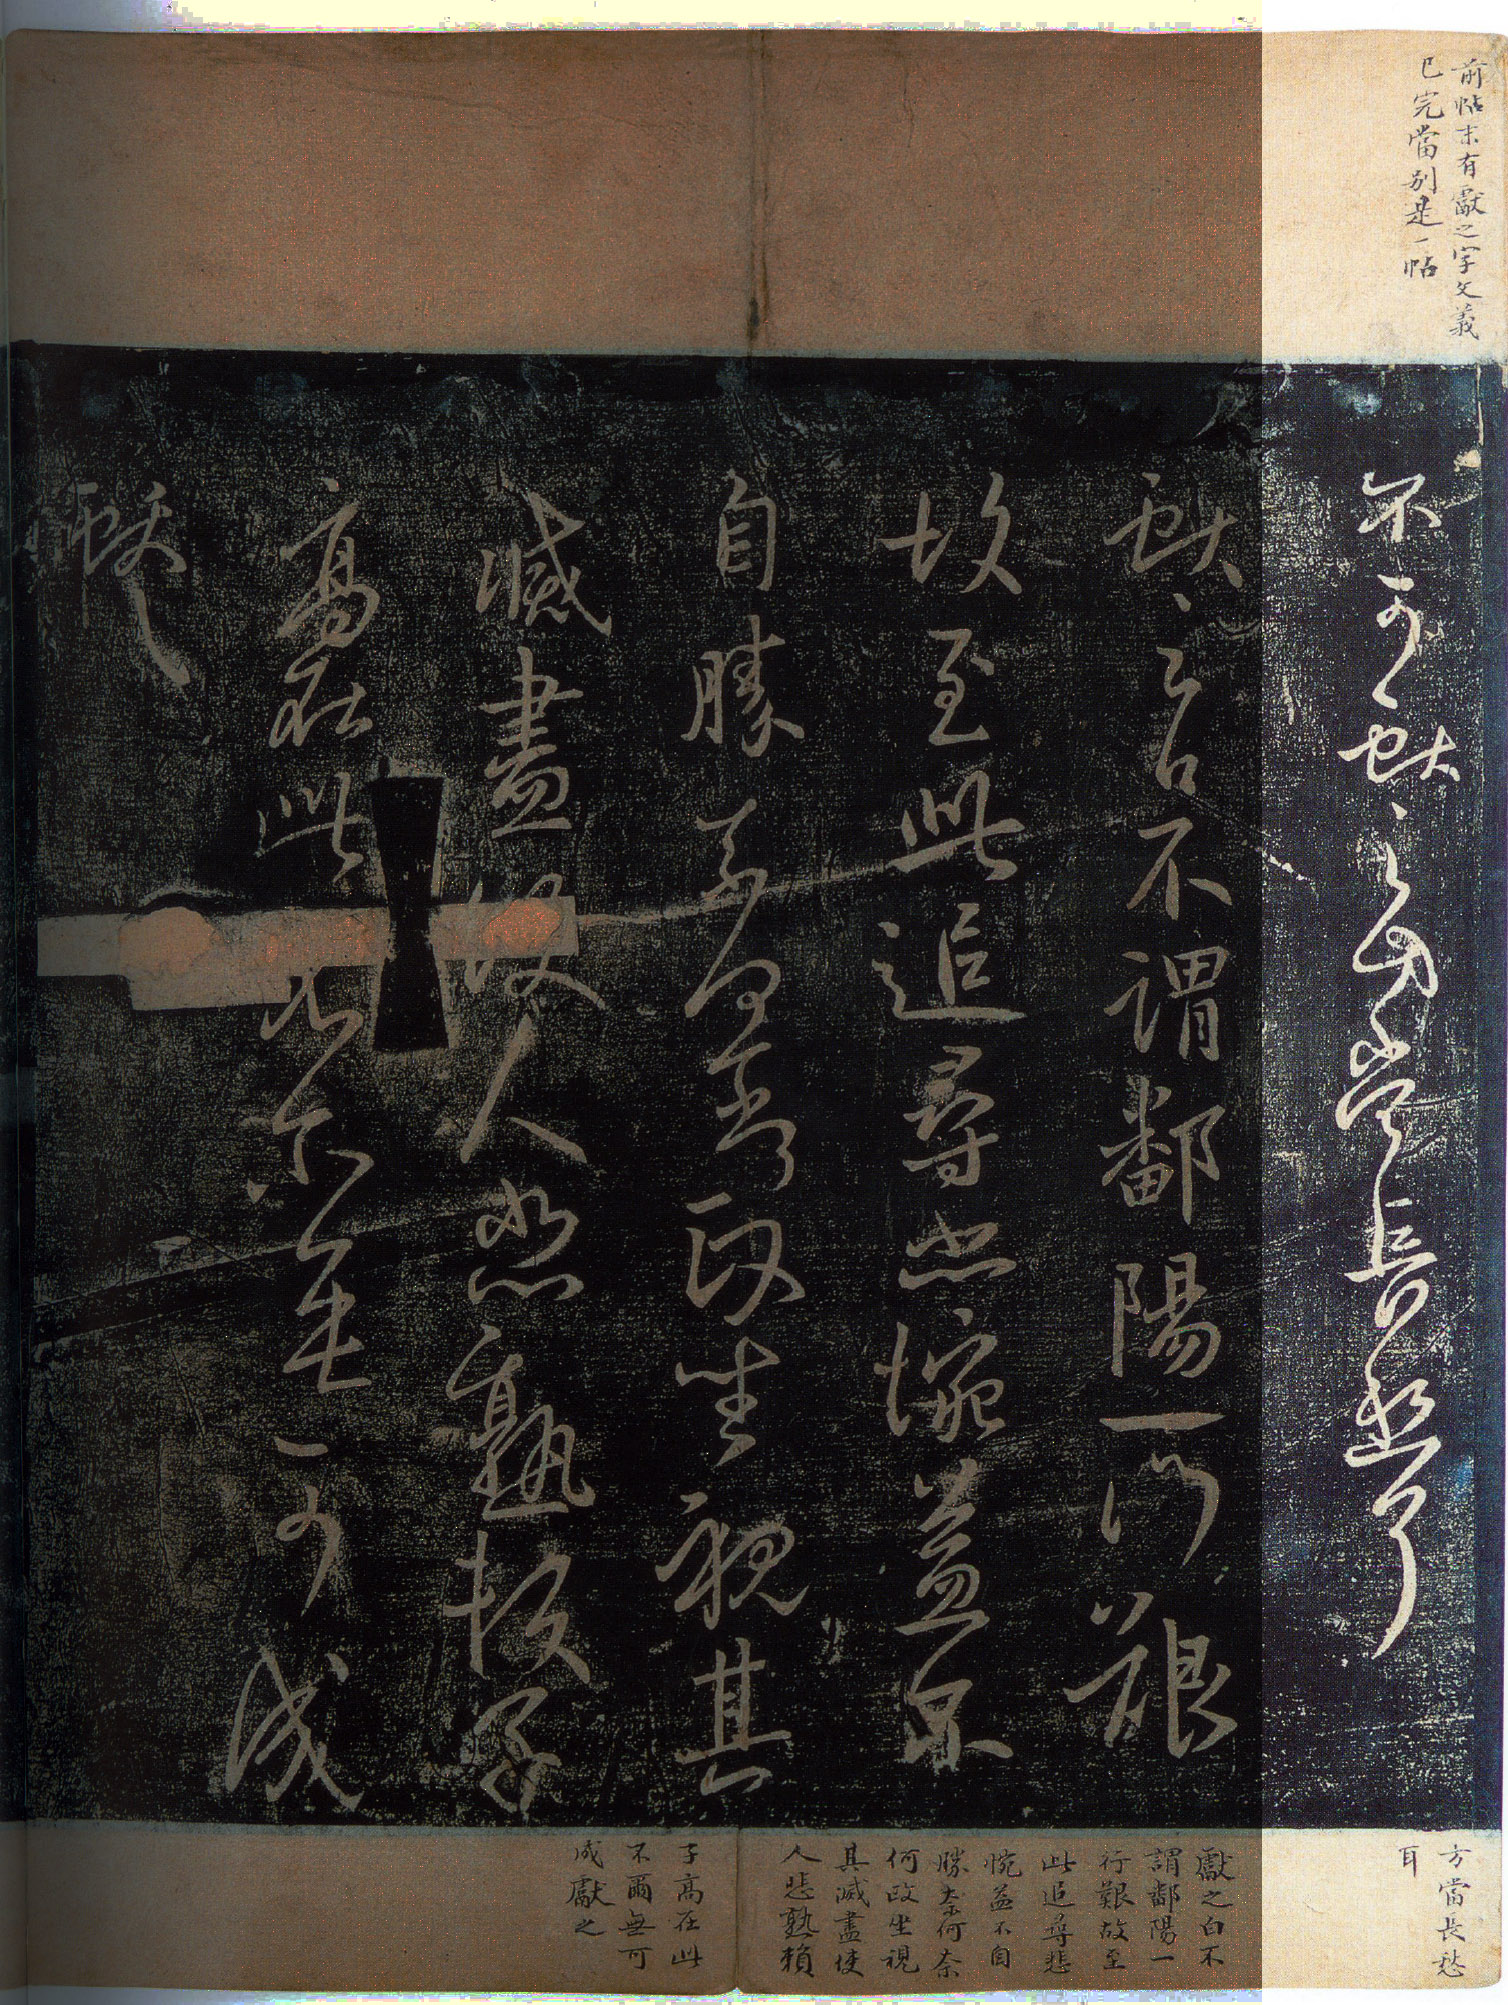 前帖末有獻之字文義
已完當別是一帖
不可獻之方當長愁耳
獻之白不謂鄱陽一行艱
故至此追尋悲惋益不
自勝奈何奈何政坐視其
滅盡使人悲熟賴子
高在此不爾無可成
獻之
方當長愁
耳
獻之白不
謂鄱陽一
行艱故至
此追尋悲
惋益不自
勝奈何奈
何政坐視
其滅盡使
人悲熟賴
子高在此
不爾無可
成獻之